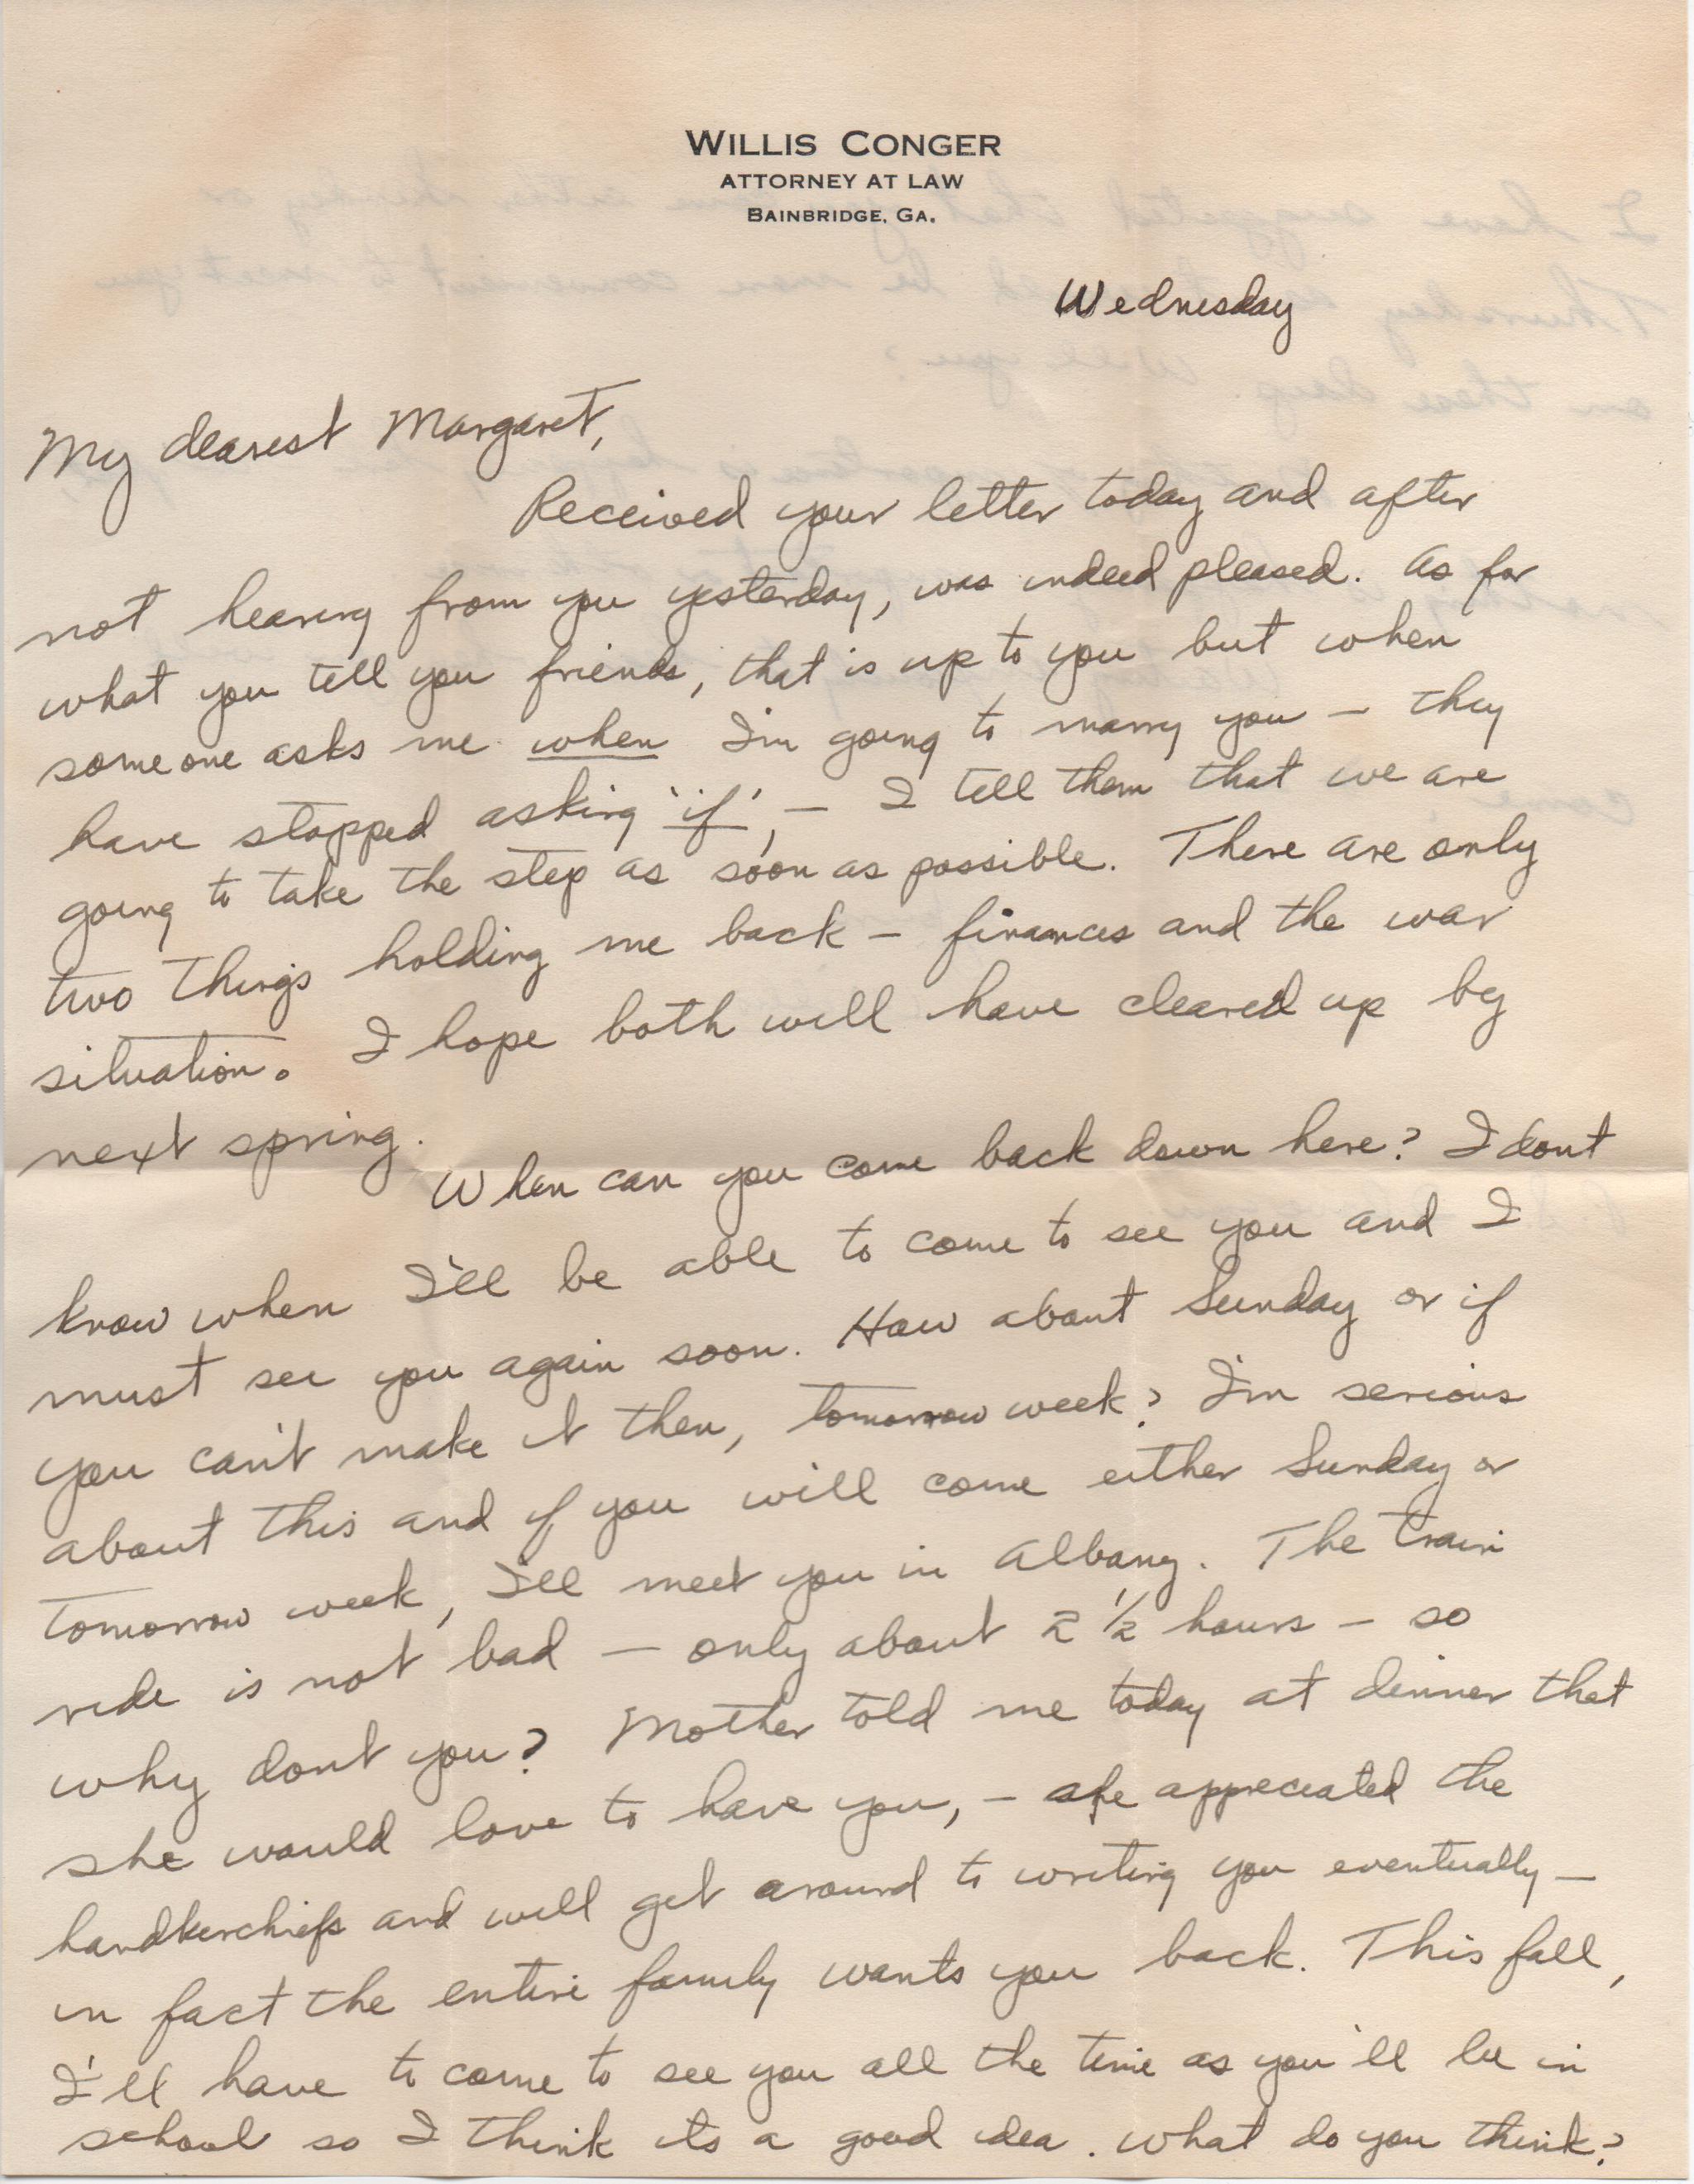 WILLIS CONGER
ATTORNEY AT LAW
BAINBRIDGE, GA.
Wednesday
My dearest Margaret,
Received your letter today and after
not hearing from you yesterday, was indeed pleased. As for
what you tell you friends, that is up to you but when
someone asks me when I'm going to marry you – they
have stopped asking 'if', – I tell them that we are
going to take the step as soon as possible. There are only
two things holding me back – finances and the war
situation. I hope both will have cleared up by
next spring.
When can you come back down here? I dont
know when I'll be able to come to see you and I
must see you again soon. How about Sunday or if
you can't make it then, tomorrow week? I'm serious
about this and if you will come either Sunday or
tomorrow week, I'll meet you in Albany. The train
ride is not bad – only about 2 1/2 hours – so
why dont you? Mother told me today at dinner that
she would love to have you, – she appreciated the
handkerchiefs and will get around to writing you eventually –
in fact the entire family wants you back. This fall,
I'll have to come to see you all the time as you'll be in
school so I think its a good idea. What do you think?